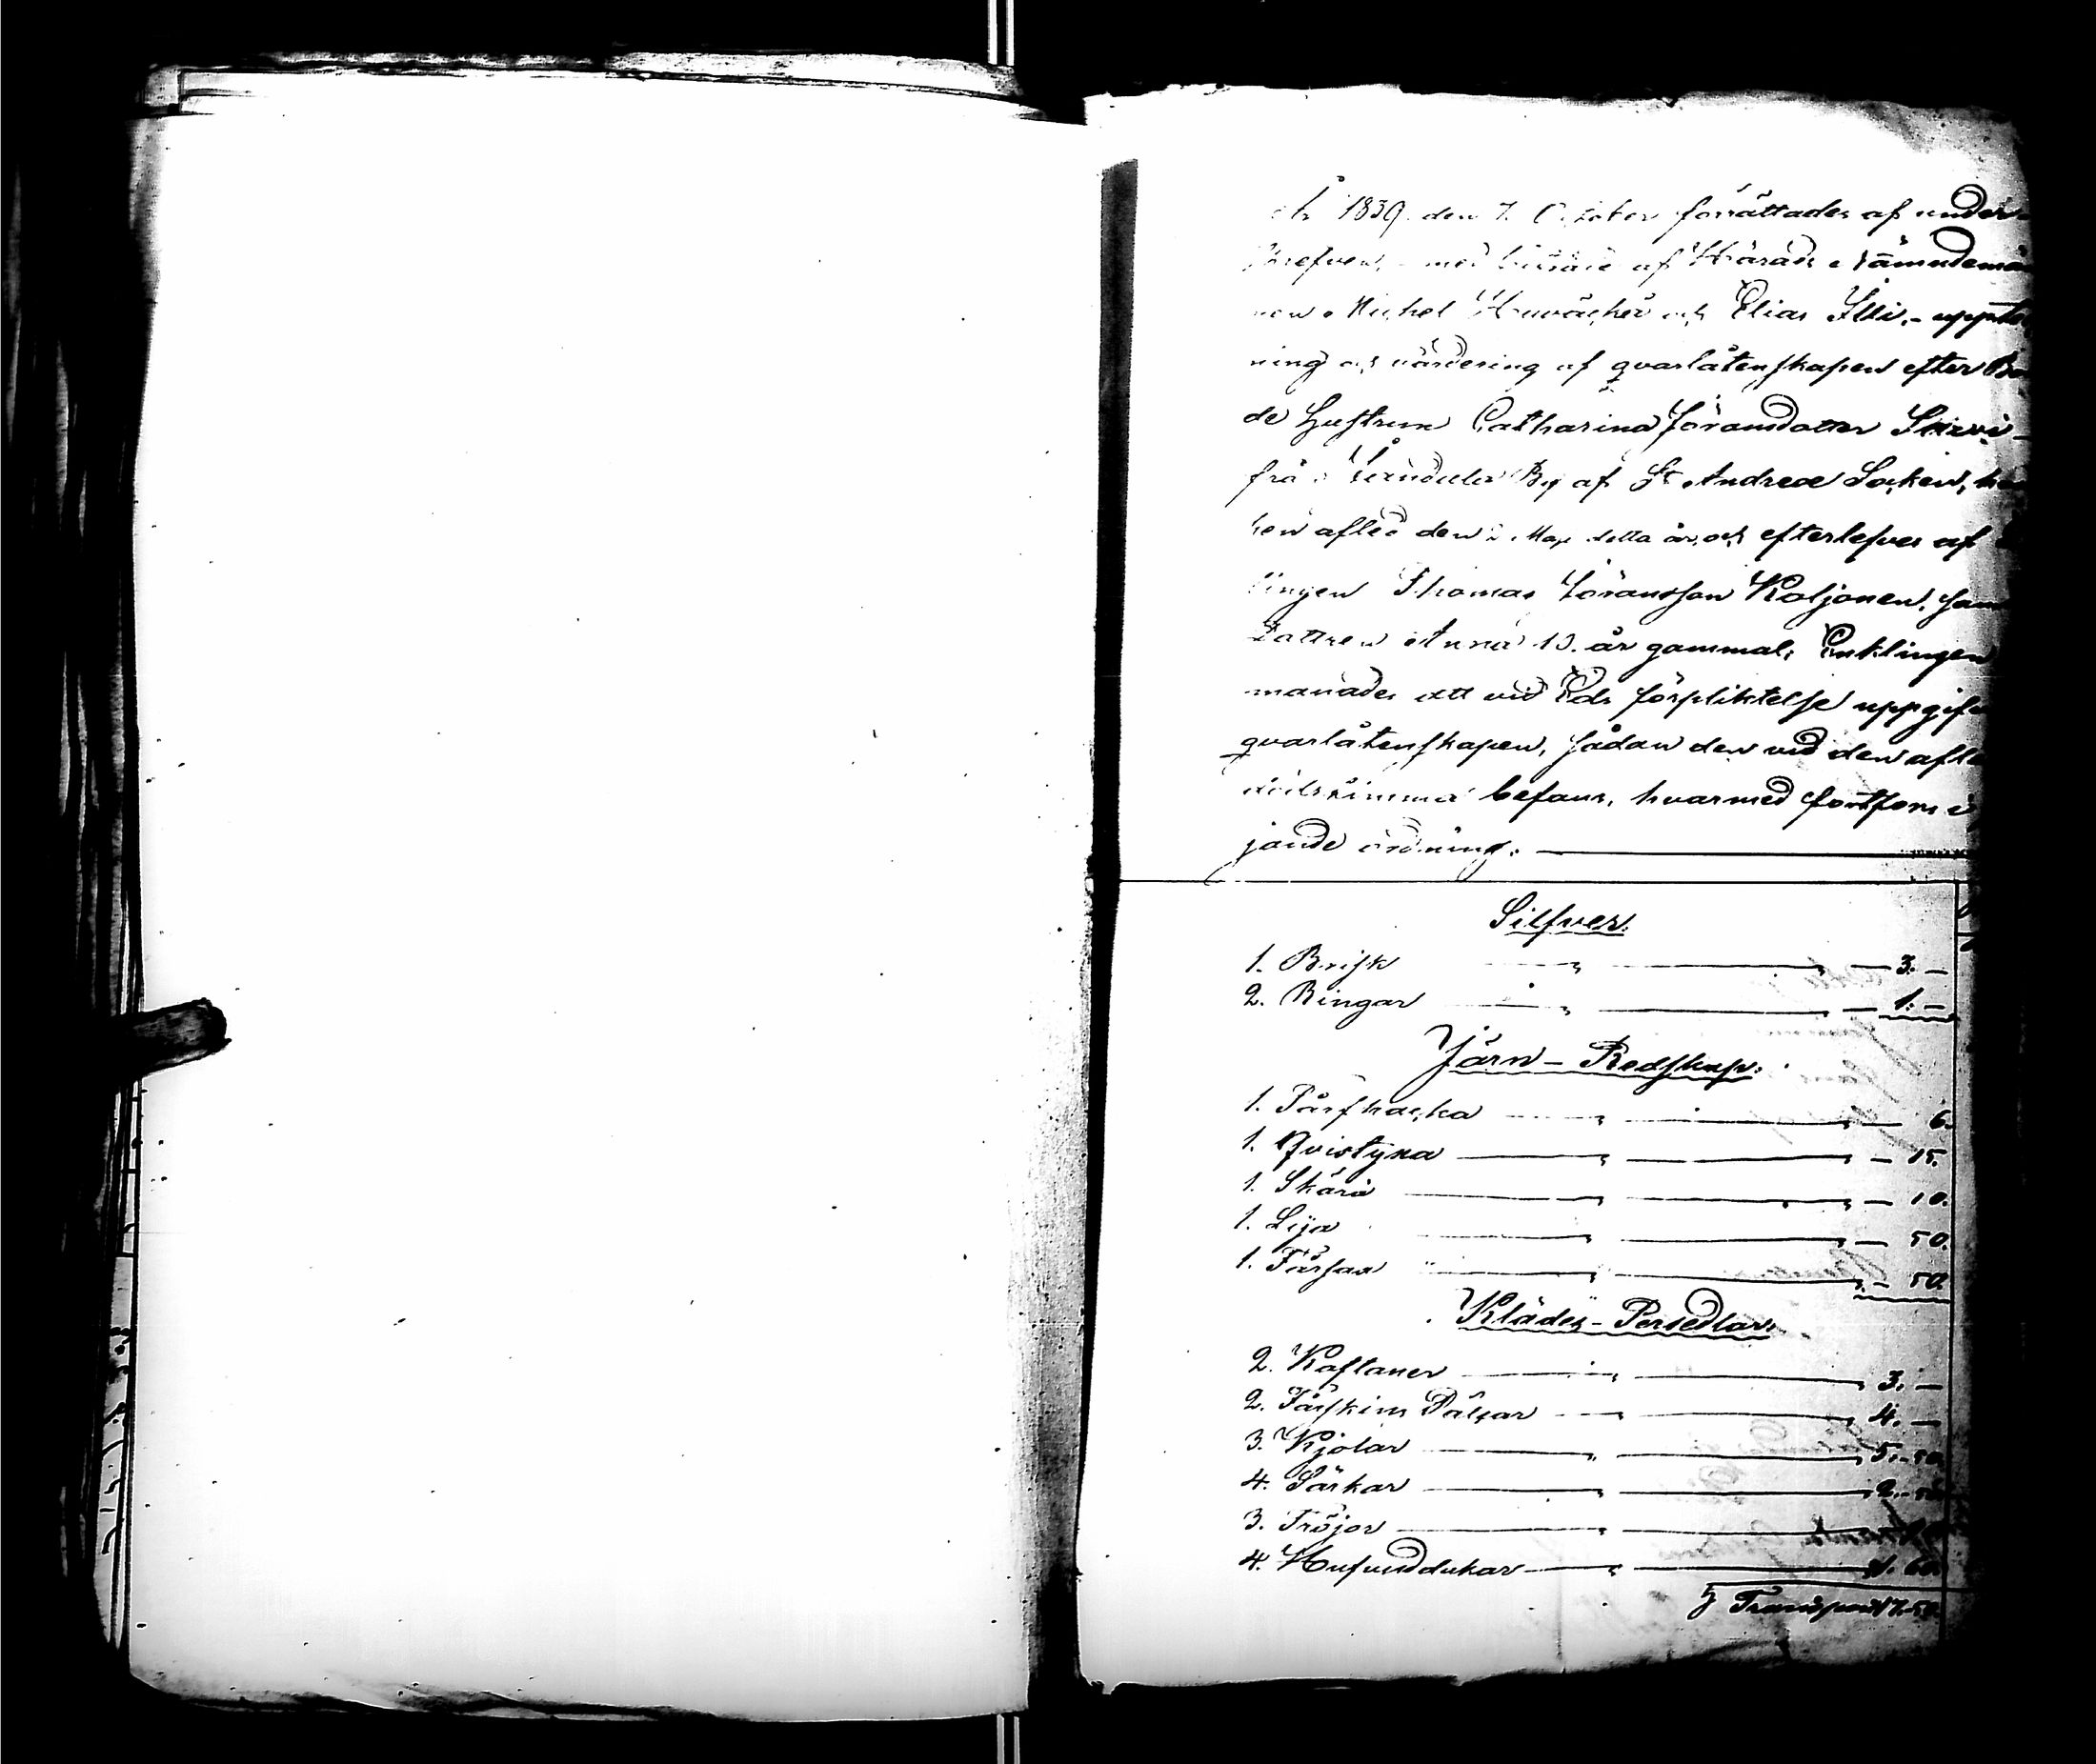 År 1839. den 7. October förrättades af under-
skrefven, med biträde af Härads Nämndemän
nen Michel och Elias Illi, uppteck
ning och värdering af qvarlåtenskapen efter Bon
de Hustrun Catharina Jöransdotter Sirvi-
från By af St Andreæ Socken,
ken afled den 2 Maji detta år, och efterlefves af
lingen Thomas Göransson Koljonen, samt
Dottren Anna 13. år gammal, Enklingen
manades att vid Eds förpliktelse uppgifva
qvarlåtenskapen, sådan den vid den afl
dödstimma befans, hvarmed fortfors i
jande ordning.
Silfver.
1. Brisk " " 3. —
2. Ringar " " 1. —
Järn-Redskap.
1. Tårfhacka " " 6.
1. Qvistyxa " " 15.
1. Skära " " 10.
1. Lija " " 50.
1. Fårsax " " 50.
Klädes-Persedlar.
2. Kaftaner " " 3. —
2. Fårskins Pälsar " " 4. —
3. Kjolar " " 5. 50.
4. Särkar " " 2. 50.
3. Tröjor "
4. Hufvuddukar " " 1. 60.
Transport